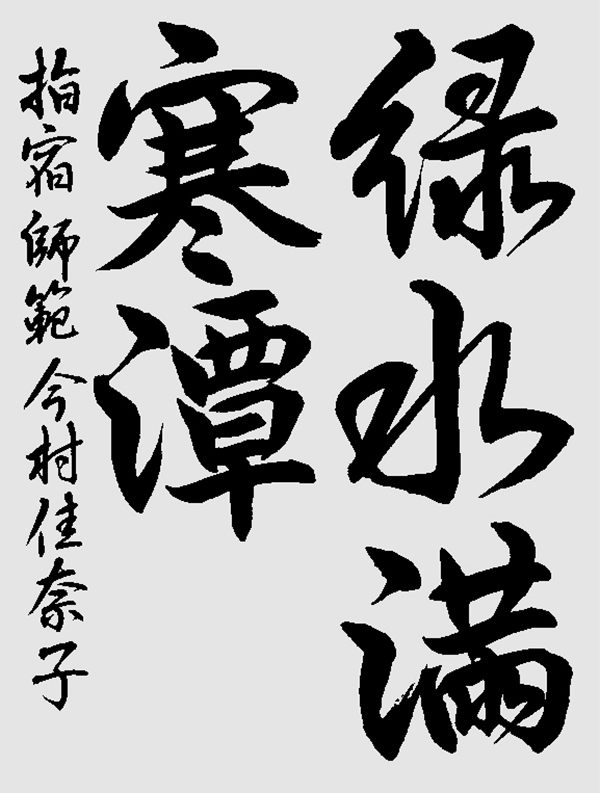 緑水満
寒潭
指宿 師範 今村佳奈子